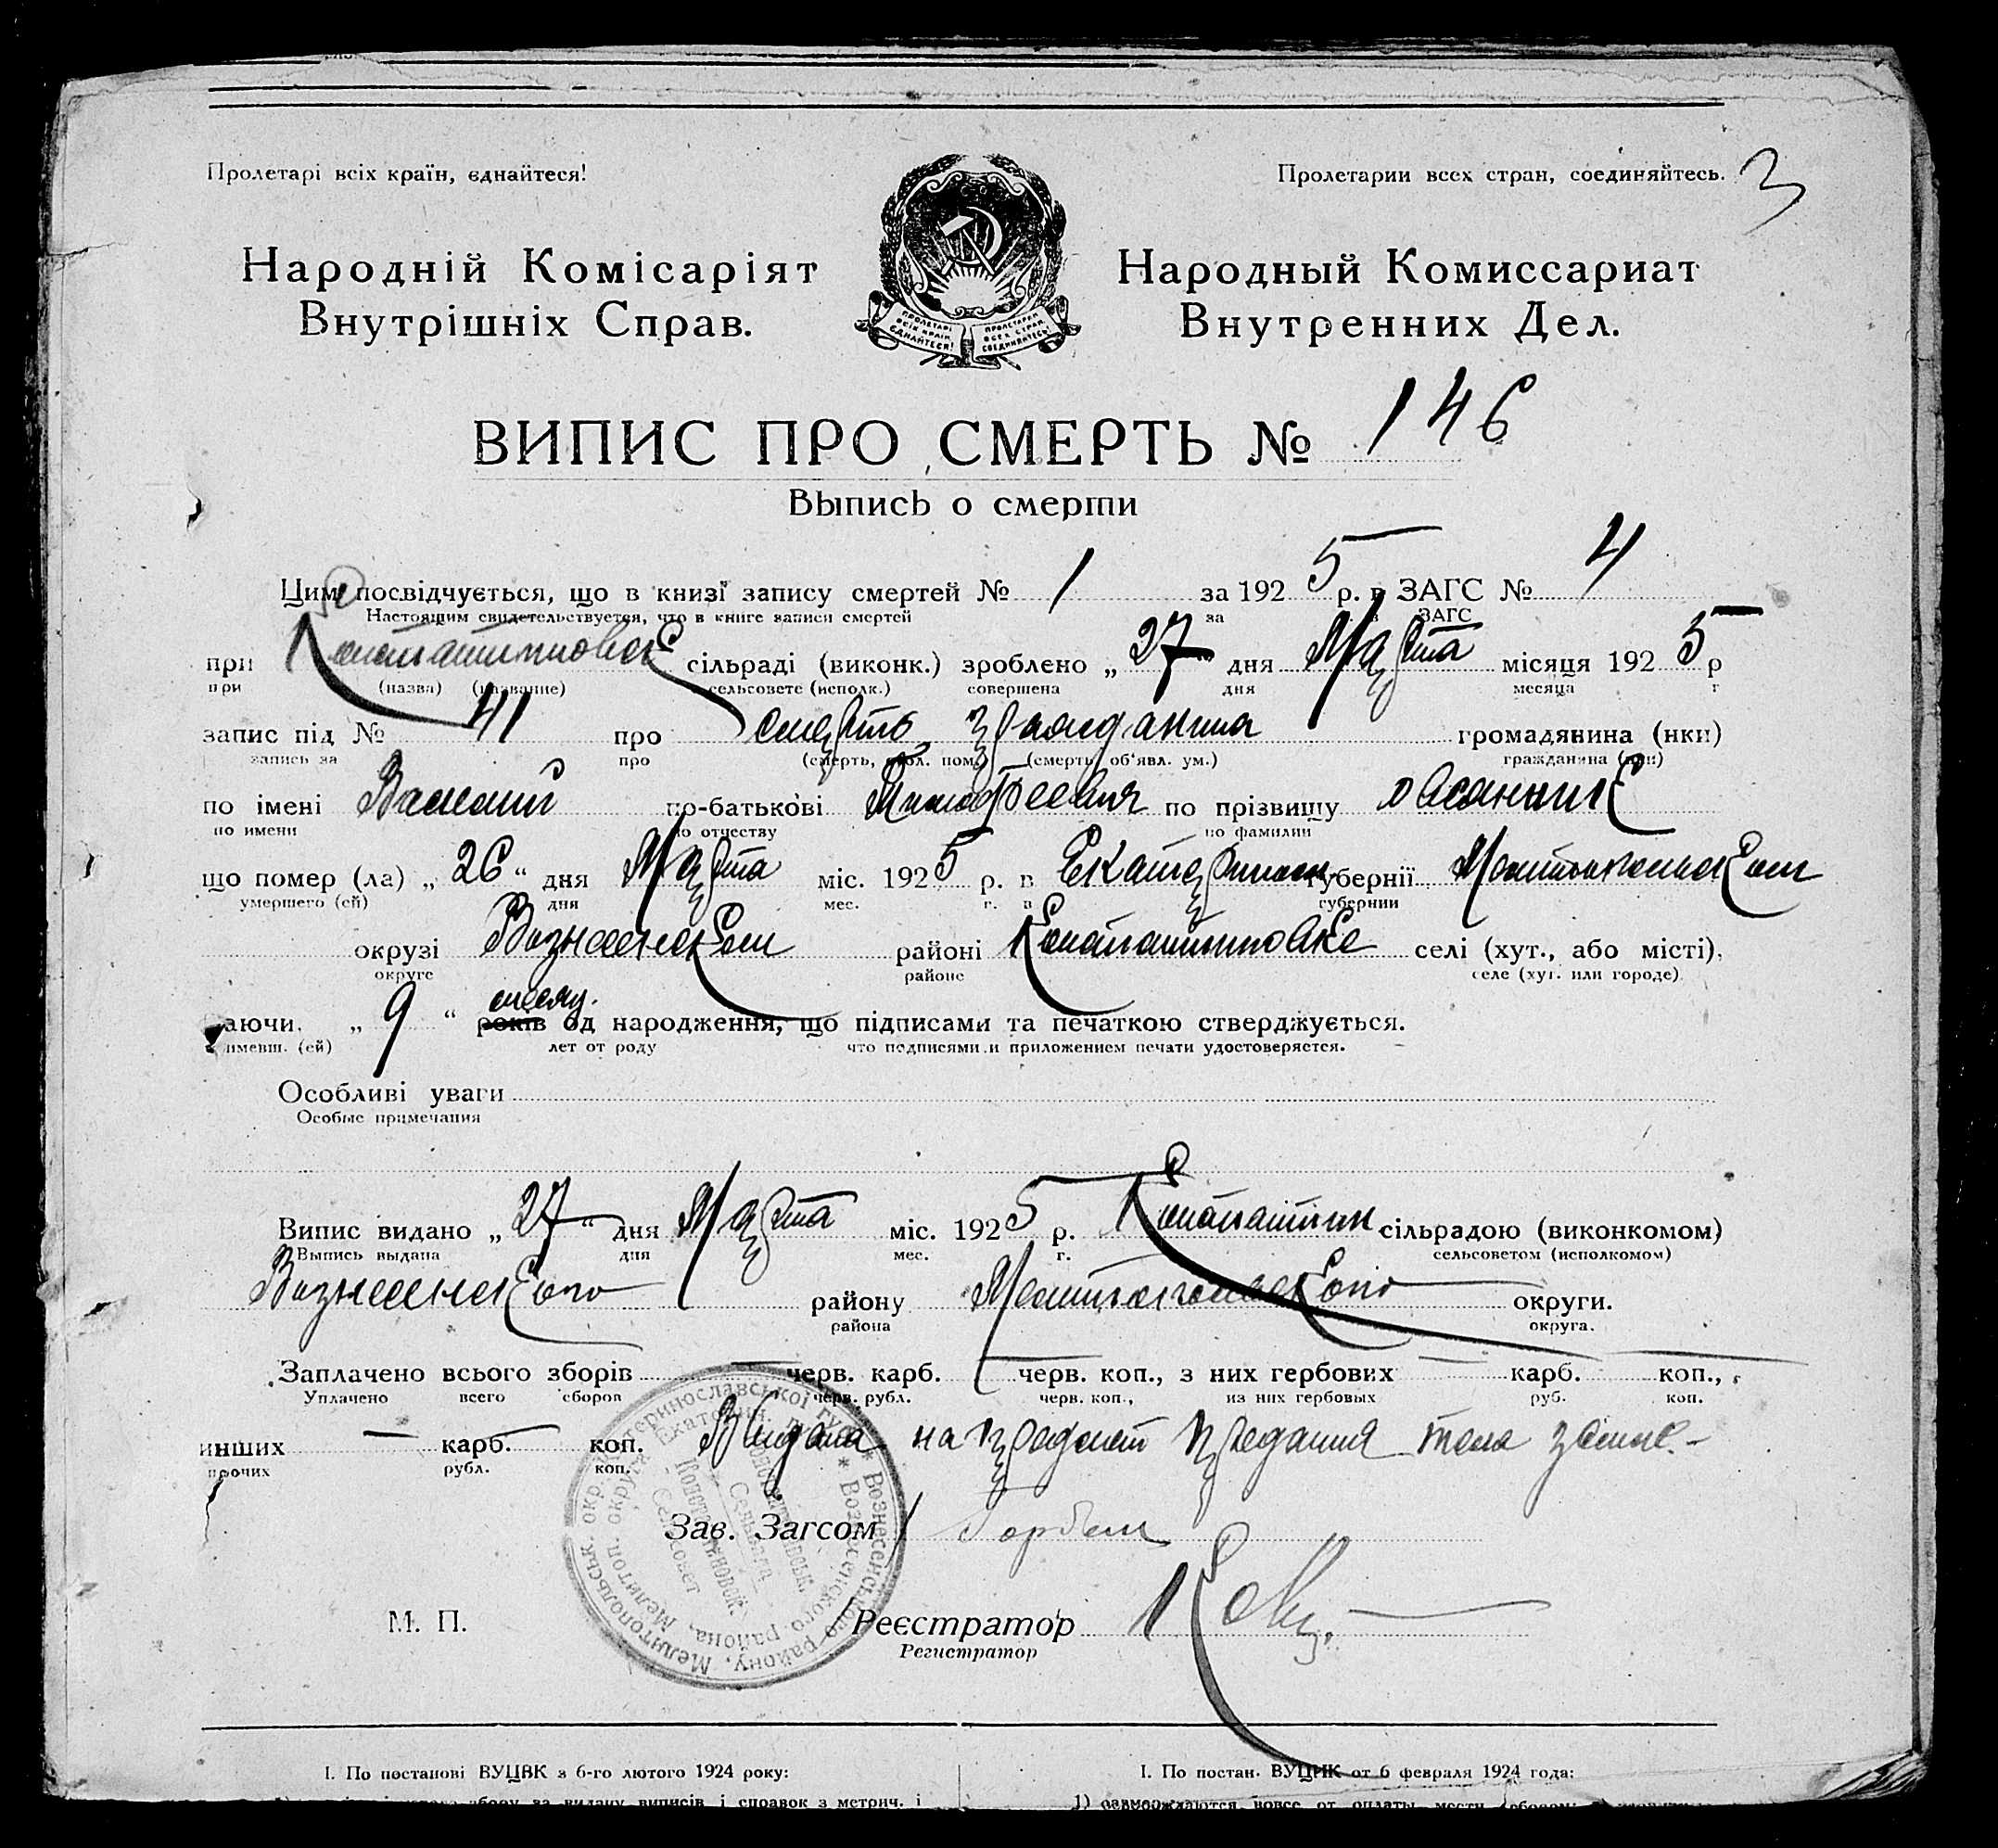 Пролетарі всіх країн, єднайтеся!
Пролетарии всех стран, соединяйтесь.
3
Народній Комісаріят
Внутрішніх Справ.
Народный Комиссариат
Внутренних Дел.
ПРОЛЕТАРІ ВСІХ КРАЇН, ЄДНАЙТЕСЯ!
ПРОЛЕТАРИИ ВСЕХ СТРАН, СОЕДИНЯЙТЕСЬ!
ВИПИС ПРО СМЕРТЬ № 146
Выпись о смерти
Цим посвідчується, що в книзі запису смертей № 1 за 1925 р. в ЗАГС № 4
Настоящим свидетельствуется, что в книге записи смертей за в ЗАГС
при Константиновск сільраді (виконк.) зроблено „27“ дня Марта місяця 1925 р
при (назва) (название) сельсовете (исполк.) совершена дня месяца г
запис під № 41 про смерть гражданина громадянина (нки)
запись за про (смерть, пом.) (смерть, об'явл. ум.) гражданина
по імені Василий по-батькові Тимофеевия по прізвищу
по имени по отчеству по фамилии
що помер (ла) „26“ дня Марта міс. 1925 р. в Екатеринослав. губернії Мелитопольском
умершего (ей) дня мес. г. в губернии
окрузі Вознесенском районі Константиновке селі (хут., або місті),
округе районе селе (хут. или городе)
маючи „9“ месяц. років од народження, що підписами та печаткою стверджується.
имевш. (ей) лет от роду что подписями и приложением печати удостоверяется.
Особливі уваги
Особые примечания
Випис видано „27“ дня Марта міс. 1925 р. Константин сільрадою (виконкомом)
Выпись выдана дня мес. г. сельсоветом (исполкомом)
Вознесенского району Мелитопольского округи.
района округа.
Заплачено всього зборів — черв. карб. — черв. коп., з них гербових — карб. — коп.,
Уплачено всего сборов черв. рубл. черв. коп., из них гербовых руб. коп.
инших — карб. — коп. Выдана на предмет предания тела земле.-
прочих рубл. коп.
Зав. Загсом
М. П.
Реєстратор
Регистратор
Катеринославської губ. * Вознесенського району, Мелитопольськ. окр.
I. По постанові ВУЦВК з 6-го лютого 1924 року:
I. По постан. ВУЦИК от 6 февраля 1924 года: